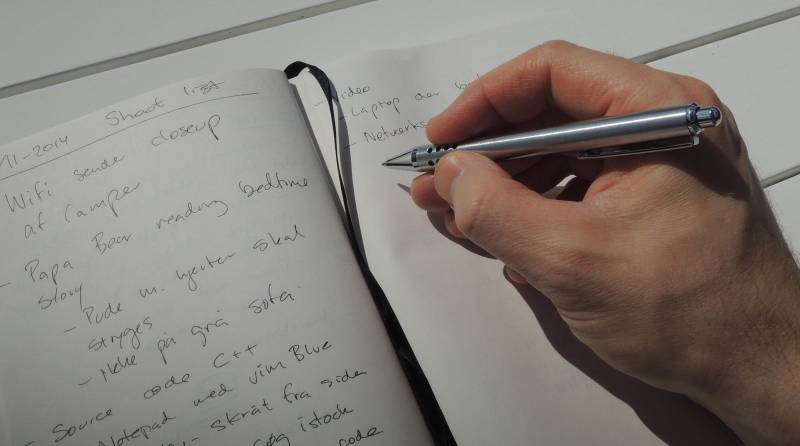 11-2014 Shoot list
Wifi sender closeup
af Camper
- Papa Bear reading bedtime
story
- Pude m. hjerter skal
stryges
- Ikke på grå sofa
- Source code C++
Notepad med vim Blue
- skråt fra siden
istock
code
- Video
- Laptop der
- Netværks